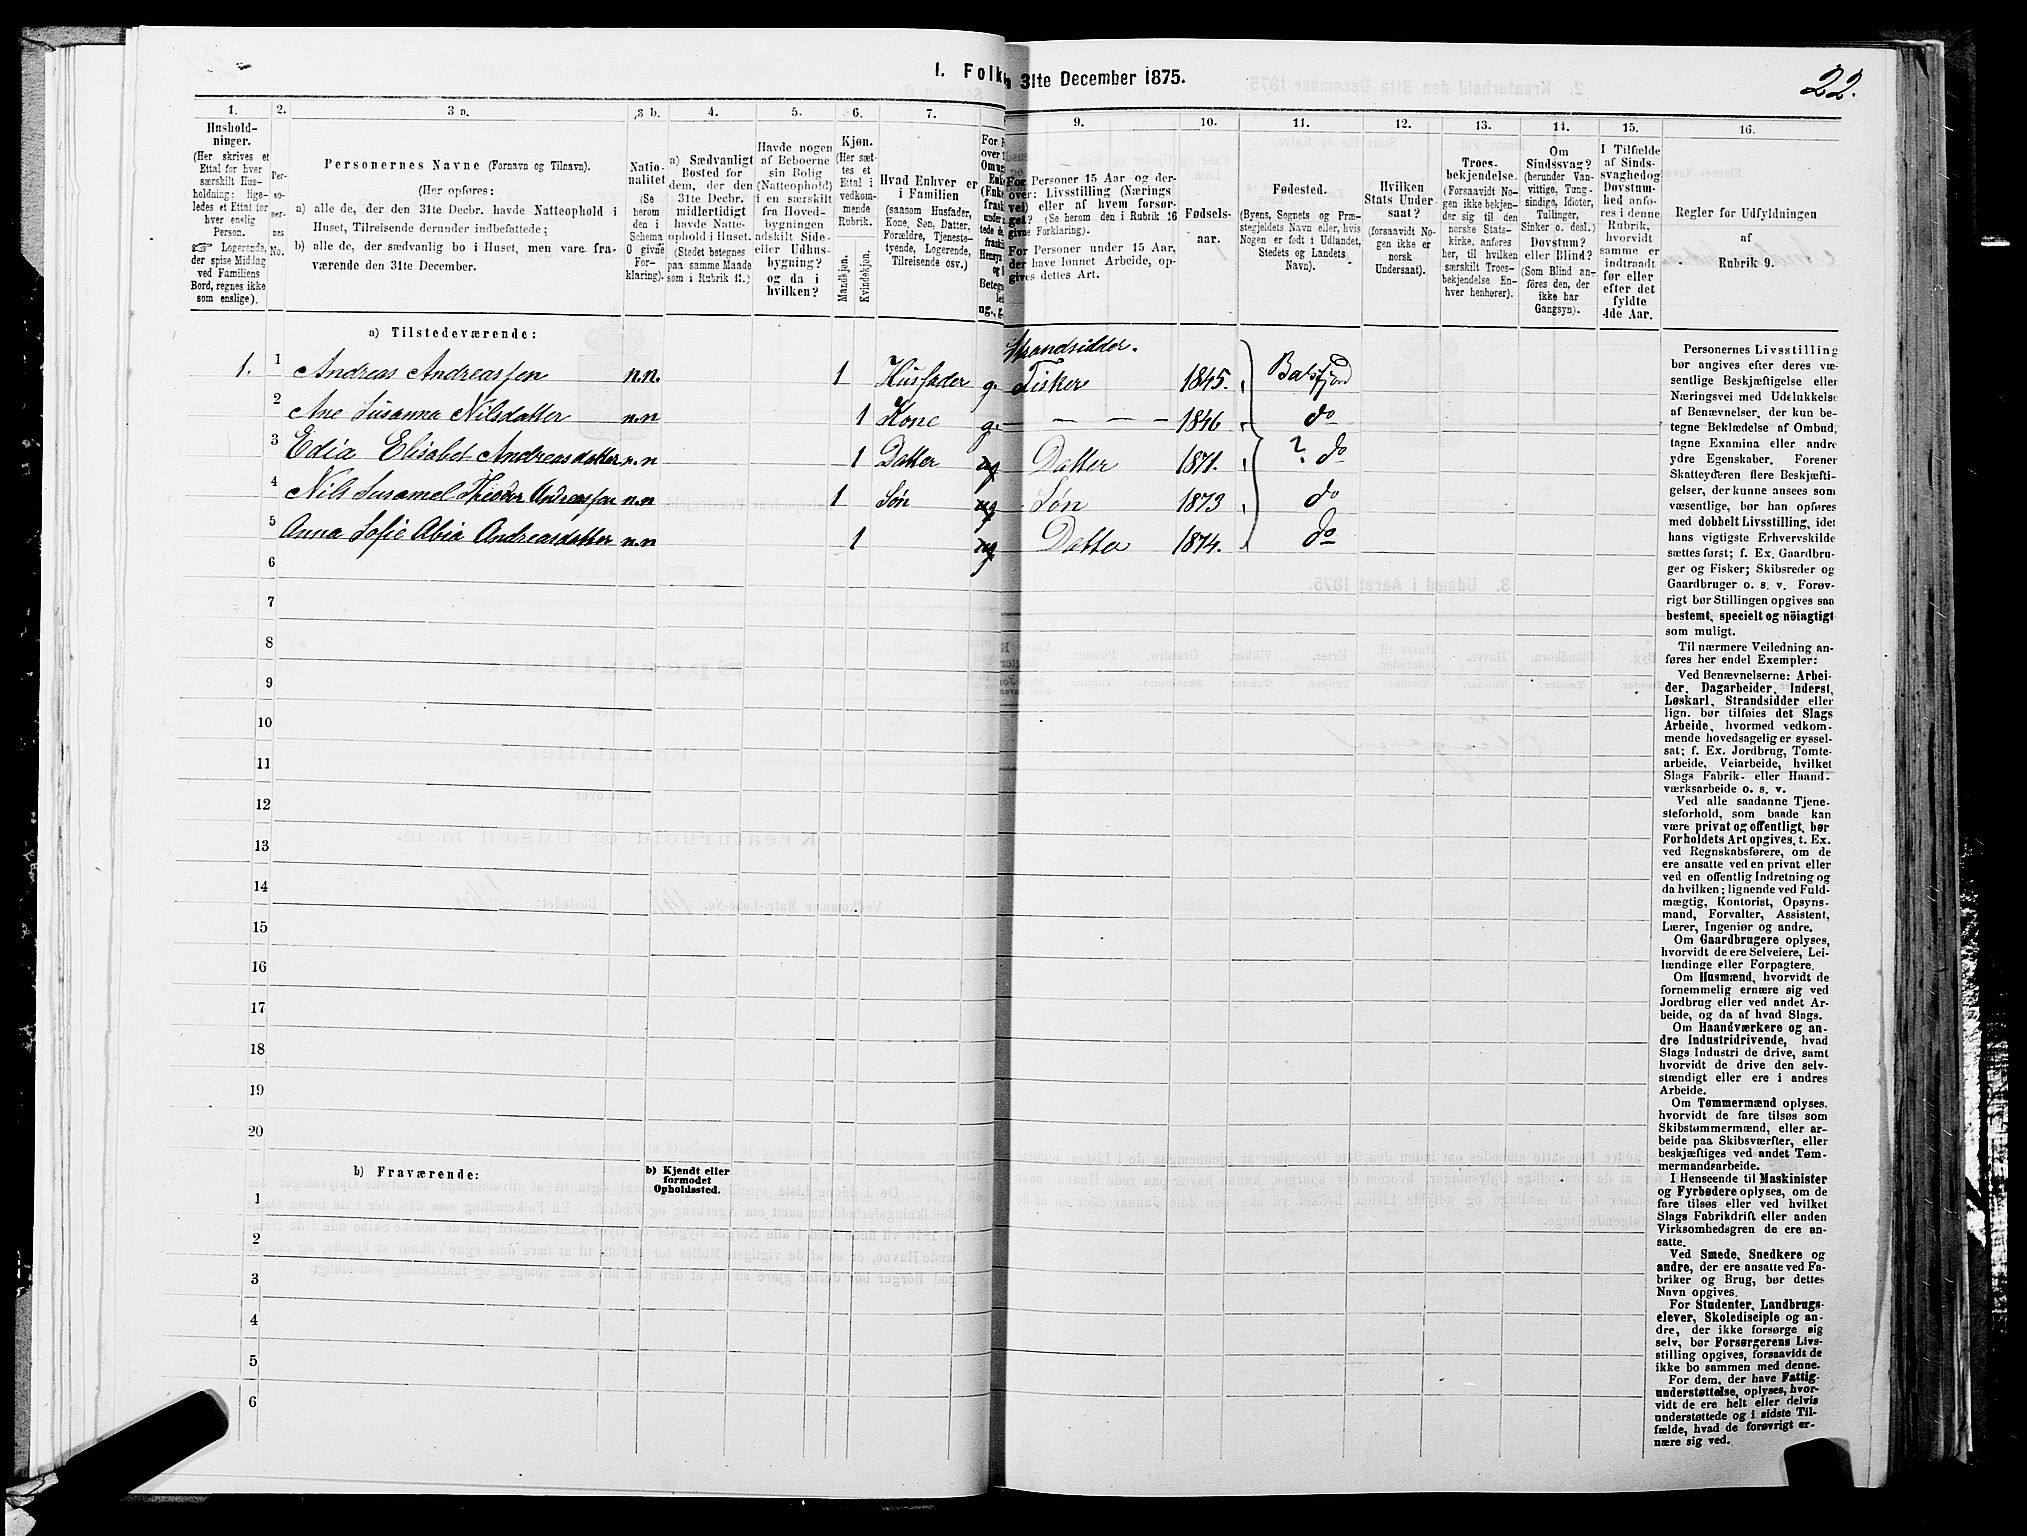 1. Folk n 31te December 1875.
22.
1. 2. 3 a. 3 b. 4. 5. 6. 7. 9. 10. 11. 12. 13. 14. 15. 16.
Hushold-
ninger.
(Her skrives et
Ettal for hver
særskilt Hus-
holdning; lige-
ledes et Ettal for
hver enslig
Person.
☞ Logerende,
der spise Middag
ved Familiens
Bord, regnes ikke
som enslige).
Per-
so-
ner-
nes
No.
Personernes Navne (Fornavn og Tilnavn).
(Her opføres:
a) alle de, der den 31te Decbr. havde Natteophold i
Huset, Tilreisende derunder indbefattede;
b) alle de, der sædvanlig bo i Huset, men vare fra-
værende den 31te December.
Natio-
nalitet
(Se
herom
den i
Schema
O givne
For-
klaring).
a) Sædvanligt
Bosted for
dem, der den
31te Decbr.
midlertidigt
havde Natte-
ophold i Huset.
(Stedet betegnes
paa samme Maade
som i Rubrik 11.)
Havde nogen
af Beboerne
sin Bolig
(Natteophold)
i en særskilt
fra Hoved-
bygningen
adskilt Side-
eller Udhus-
bygning?
og da i
hvilken?
Kjøn.
(Her sæt-
tes et
Ettal i
vedkom-
mende
Rubrik.
Mandkjøn.
Kvindekjøn.
Hvad Enhver er
i Familien
(saasom Husfader,
Kone, Søn, Datter,
Forældre, Tjeneste-
tyende, Logerende,
Tilreisende osv.)
Personer 15 Aar og der-
over: Livsstilling (Nærings
vei) eller af hvem forsør-
get? (Se herom den i Rubrik 16
givne Forklaring).
For Personer under 15 Aar,
der have lønnet Arbeide, op-
gives dettes Art.
Fødsels-
aar.
Fødested.
(Byens, Sognets og Præ-
stegjeldets Navn eller, hvis
Nogen er født i Udlandet,
Stedets og Landets
Navn).
Hvilken
Stats Under-
saat?
(forsaavidt No-
gen ikke er
norsk
Undersaat).
Troes-
bekjendelse.
(Forsaavidt No-
gen ikke bekjen-
der sig til den
norske Stats-
kirke, anføres
her, til hvilken
særskilt Troes-
bekjendelse En-
hver henhører).
Om
Sindssvag?
(herunder Van-
vittige, Tung-
sindige, Idioter,
Tullinger,
Sinker o. desl.)
Døvstum?
eller Blind?
(Som Blind an-
føres den, der
ikke har
Gangsyn).
I Tilfælde
af Sinds-
svaghed og
Døvstum-
hed anfø-
res i denne
Rubrik,
hvorvidt
samme er
indtraadt
før eller
efter det
fyldte
4de Aar.
Regler for Udfyldningen
af
Rubrik 9.
a) Tilstedeværende:
Strandsidder.
1. 1 Andreas Andreassen n.n. 1 Husfader g. Fisker 1845. Balsfjord
2 Ane Susanna Nilsdatter n.n 1 Kone g. — — — 1846 do
3 Edia Elisabet Andreasdatter n.n 1 Datter ug Datter 1871. ? do
4 Nils Susamel Theodor Andreassen n.n 1 Søn ug Søn 1873 do
5 Anna Sofie Abia Andreasdatter n.n 1 ug Datter 1874. do
6
7
8
9
10
11
12
13
14
15
16
17
18
19
20
b) Fraværende:
b) Kjendt eller
formodet
Opholdssted.
1
2
3
4
5
6
Personernes Livsstilling
bør angives efter deres væ-
sentlige Beskjæftigelse eller
Næringsvei med Udelukkelse
af Benævnelser, der kun be-
tegne Beklædelse af Ombud,
tagne Examina eller andre
ydre Egenskaber. Forener
Skatteyderen flere Beskjæfti-
gelser, der kunne ansees som
væsentlige, bør han opføres
med dobbelt Livsstilling, idet
hans vigtigste Erhvervskilde
sættes først; f. Ex. Gaardbru-
ger og Fisker; Skibsreder og
Gaardbruger o. s. v. Forøv-
rigt bør Stillingen opgives saa
bestemt, specielt og nöiagtigt
som muligt.
Til nærmere Veiledning an-
føres her endel Exempler:
Ved Benævnelserne: Arbei-
der, Dagarbeider, Inderst,
Løskarl, Strandsidder eller
lign. bør tilføies det Slags
Arbeide, hvormed vedkom-
mende hovedsagelig er syssel-
sat; f. Ex. Jordbrug, Tomte-
arbeide, Veiarbeide, hvilket
Slags Fabrik- eller Haand-
værksarbeide o. s. v.
Ved alle saadanne Tjene-
steforhold, som baade kan
være privat og offentligt, bør
Forholdets Art opgives, t. Ex.
ved Regnskabsførere, om de
ere ansatte ved en privat eller
ved en offentlig Indretning og
da hvilken; lignende ved Fuld-
mægtig, Kontorist, Opsyns-
mand, Forvalter, Assistent,
Lærer, Ingeniør og andre.
Om Gaardbrugere oplyses,
hvorvidt de ere Selveiere, Lei-
lændinge eller Forpagtere.
Om Husmænd, hvorvidt de
fornemmelig ernære sig ved
Jordbrug eller ved andet Ar-
beide, og da af hvad Slags.
Om Haandværkere og an-
dre Industridrivende, hvad
Slags Industri de drive, samt
hvorvidt de drive den selv-
stændigt eller ere i andres
Arbeide.
Om Tømmermænd oplyses,
hvorvidt de fare tilsøs som
Skibstømmermænd, eller ar-
beide paa Skibsværfter, eller
beskjæftiges ved andet Tøm-
mermandsarbeide.
I Henseende til Maskinister
og Fyrbødere oplyses, om de
fare tilsøs eller ved hvilket
Slags Fabrikdrift eller anden
Virksomhedsgren de ere an-
satte.
Ved Smede, Snedkere og
andre, der ere ansatte ved Fa-
briker og Brug, bør dettes
Navn opgives.
For Studenter, Landbrugs-
elever, Skoledisciple og an-
dre, der ikke forsørge sig
selv, bør Forsørgerens Livs-
stilling opgives, forsaavidt de
ikke bo sammen med denne.
For dem, der have Fattig-
understøttelse, oplyses, hvor-
vidt de ere helt eller delvis
understøttede og i sidste Til-
fælde, hvad de forøvrigt er-
nære sig ved.